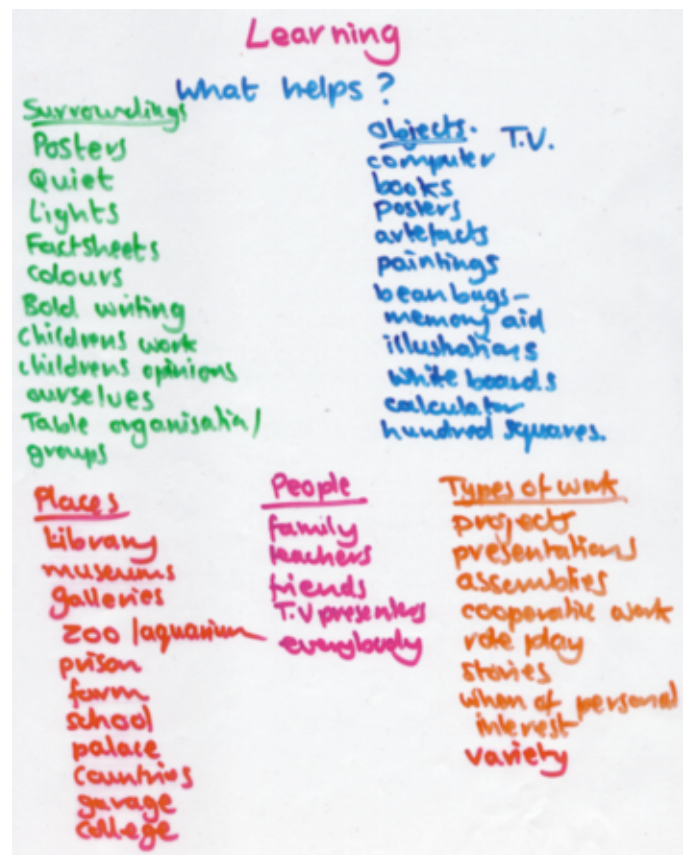 Learning
What helps?
Surroundings
Posters
Quiet
Lights
Factsheets
colours
Bold writing
Childrens work
childrens opinions
ourselves
Table organisation/
groups
Objects. T.V.
computer
books
posters
artefacts
paintings
bean bags -
memory aid
illustrations
white boards
calculator
hundred squares.
Places
Library
museums
galleries
zoo/aquarium
prison
farm
school
palace
countries
garage
college
People
family
teachers
friends
T.V presenters
everybody
Types of work
projects
presentations
assemblies
cooperative work
role play
stories
when of personal
interest
variety